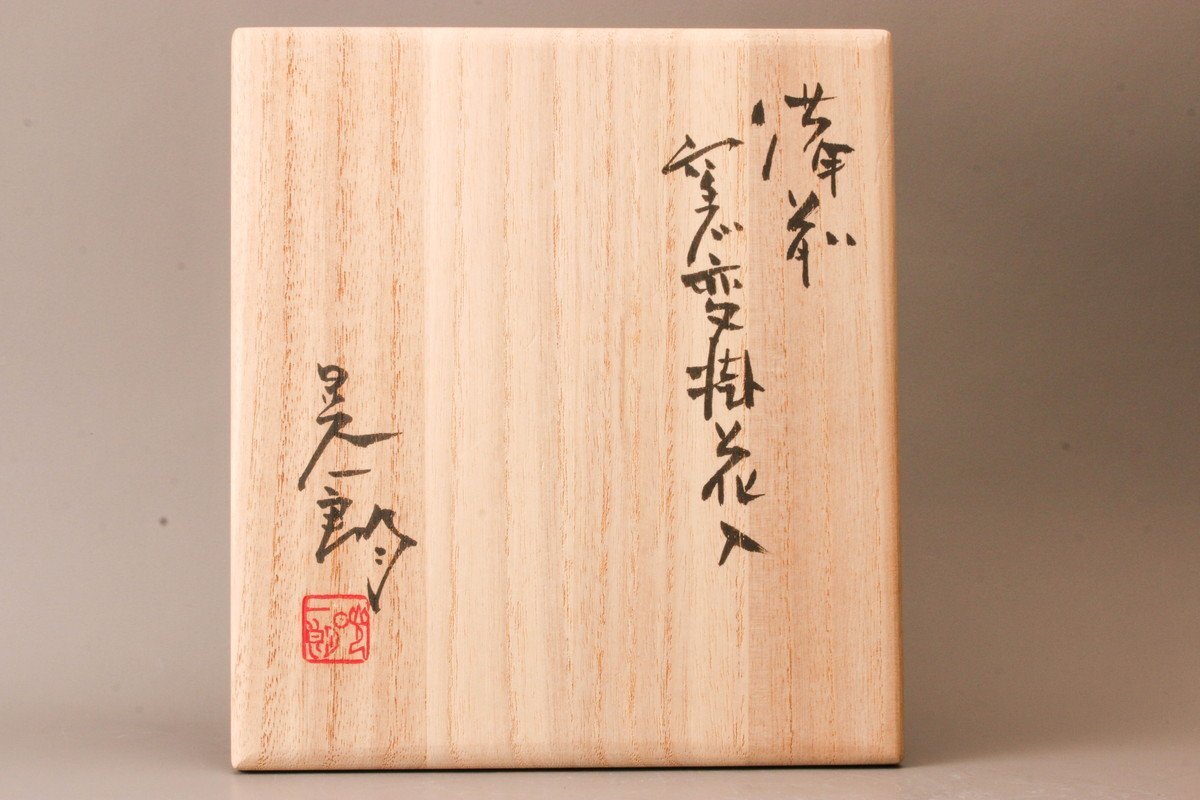 備前
窯変掛花入
晃一郎
晃一郎